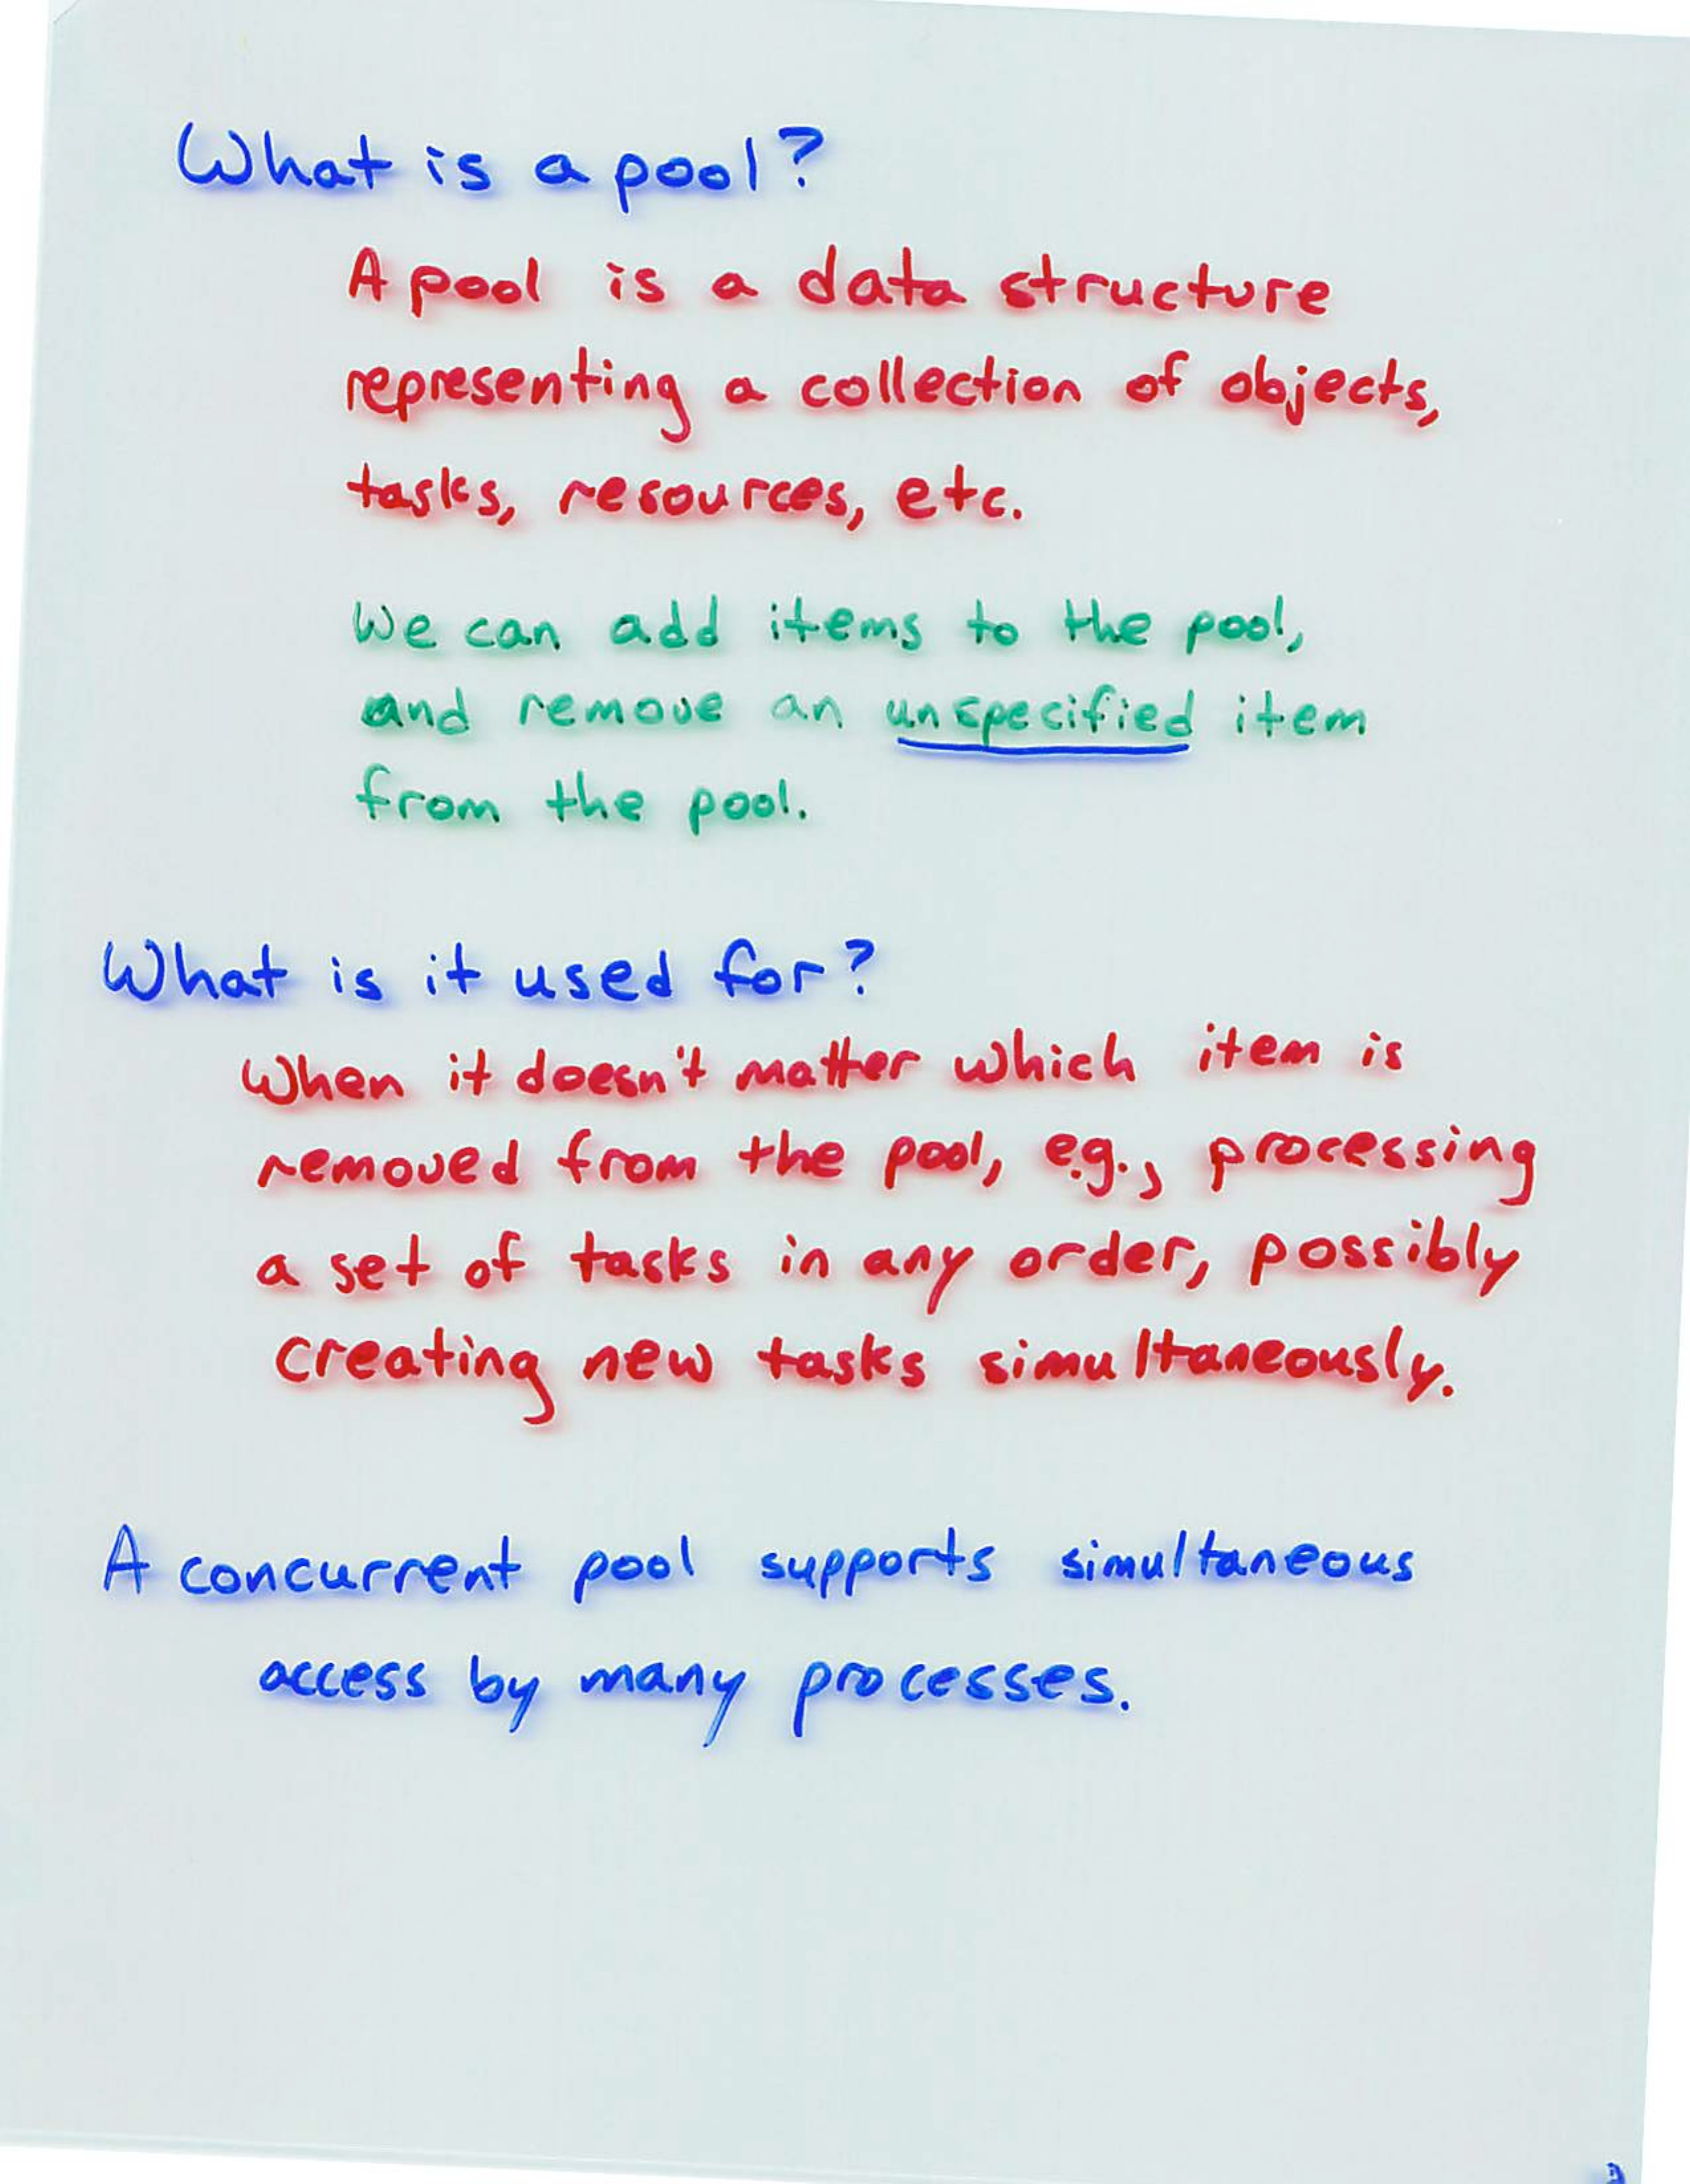 What is a pool?
A pool is a data structure
representing a collection of objects,
tasks, resources, etc.
We can add items to the pool,
and remove an unspecified item
from the pool.
What is it used for?
When it doesn't matter which item is
removed from the pool, e.g., processing
a set of tasks in any order, possibly
creating new tasks simultaneously.
A concurrent pool supports simultaneous
access by many processes.